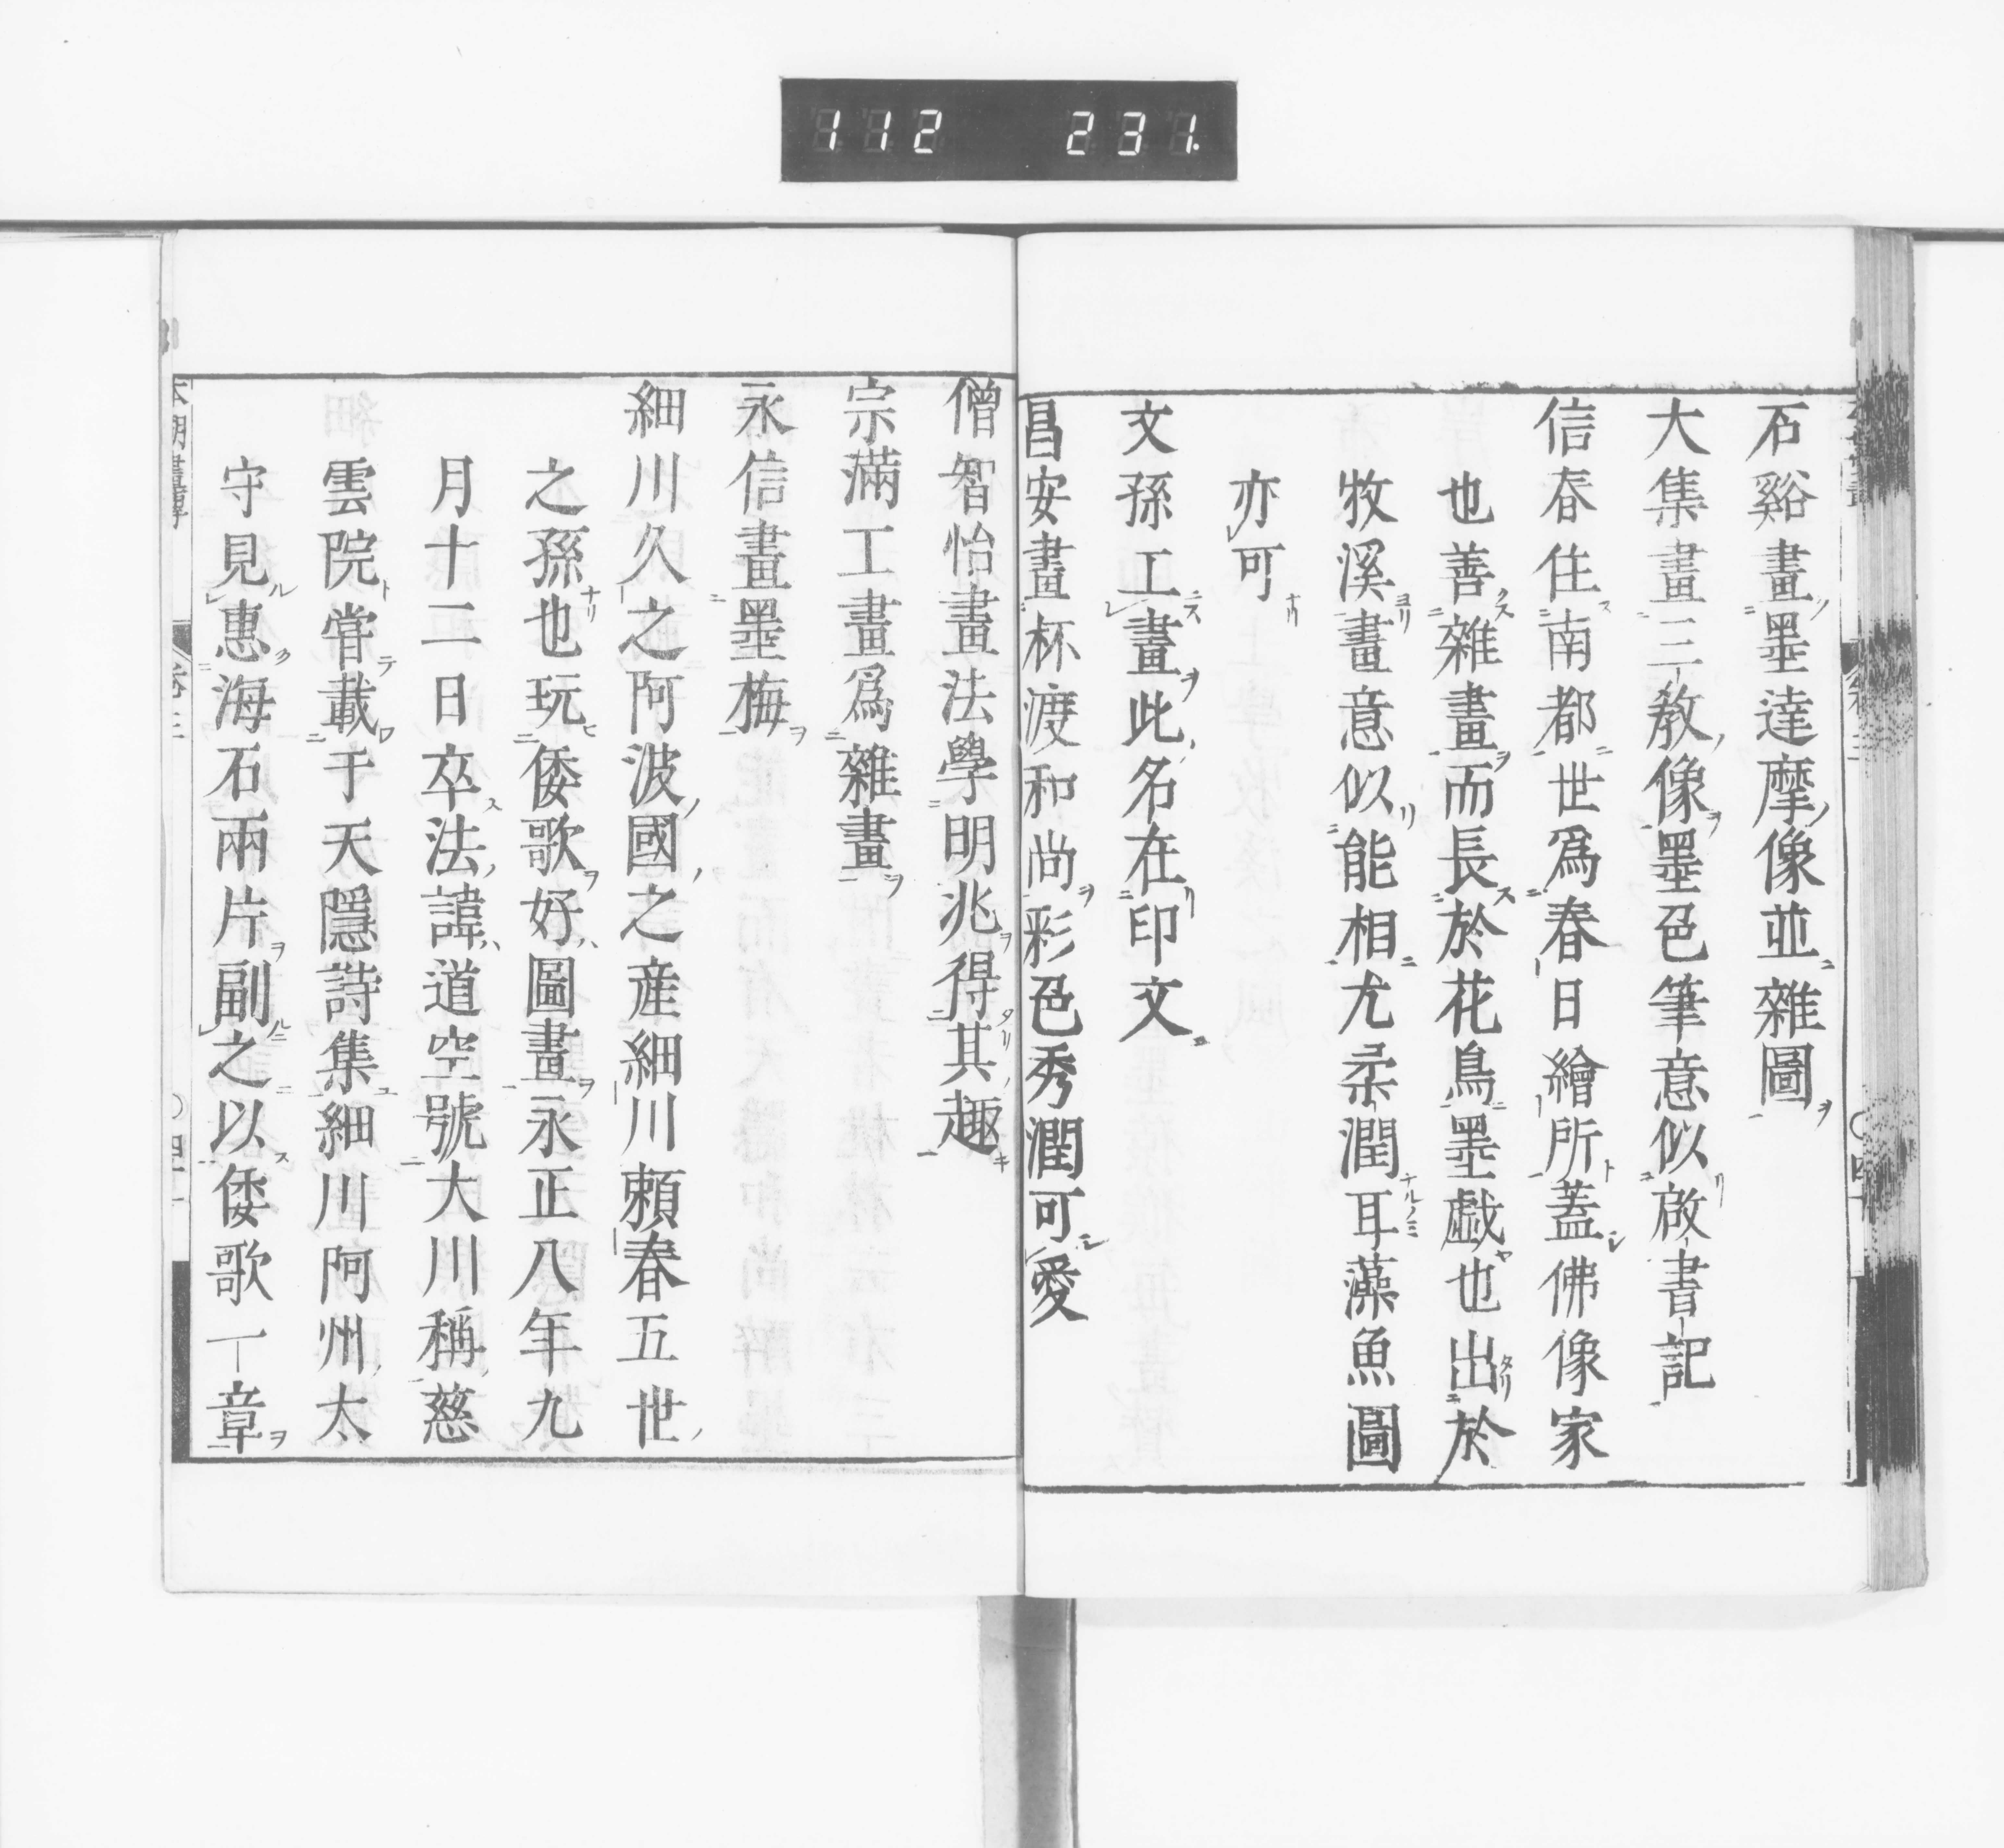 112 231.
石谿畫墨達摩像並雜圖
大集畫三教像墨色筆意似啟書記
信春住南都世爲春日繪所蓋佛像家
也善雜畫而長於花鳥墨戯也出於
牧溪畫意似能相尤柔潤耳藻魚圖
亦可
文孫工畫此名在印文
昌安畫杯渡和尚彩色秀潤可愛
僧智怡畫法學明兆得其趣
宗滿工畫爲雜畫
永信畫墨梅
細川久之阿波國之産細川頼春五世
之孫也玩倭歌好圖畫永正八年九
月十二日卒法諱道空號大川稱慈
雲院嘗載于天隱詩集細川阿州太
守見惠海石兩片副之以倭歌一章
本朝畫傳
卷三